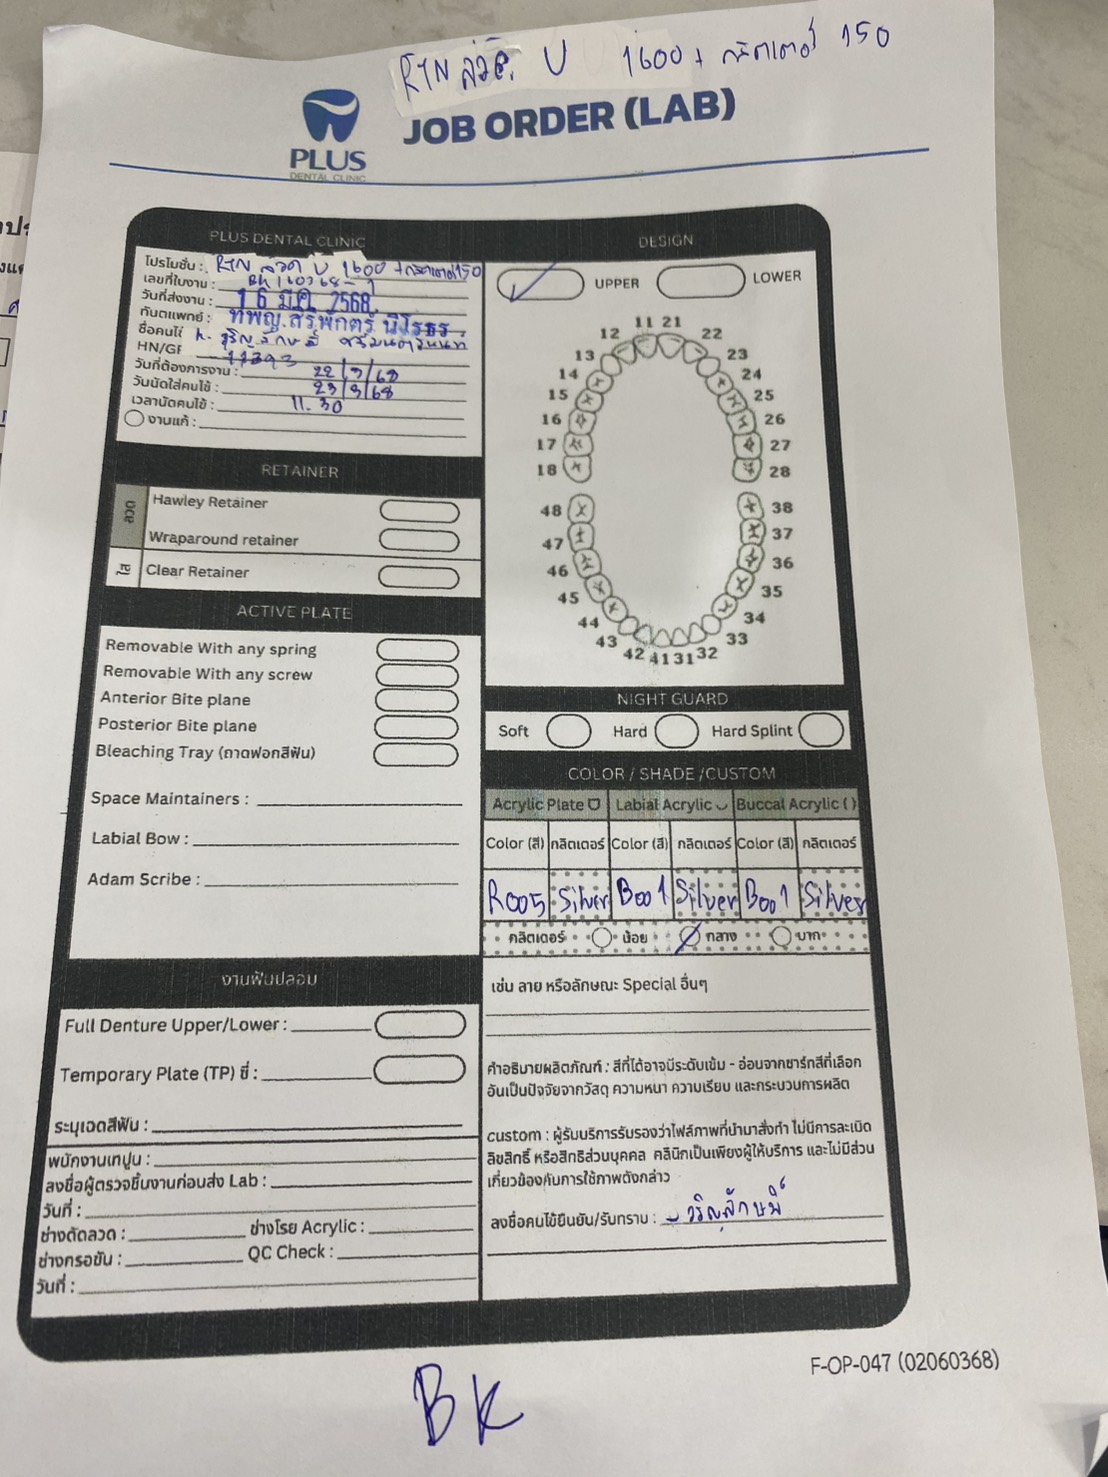 RTN ลวด U 1600 + กลิตเตอร์ 150
PLUS
DENTAL CLINIC
JOB ORDER (LAB)
PLUS DENTAL CLINIC
โปรโมชั่น : RTN ลวด U 1600 + กลิตเตอร์ 150
เลขที่ใบงาน : BK160368-1
วันที่ส่งงาน : 16 มี.ค. 2568
ทันตแพทย์ : ทพญ.สิริพักตร์
ชื่อคนไข้
HN/ 11393
วันที่ต้องการงาน : 22/3/68
วันนัดใส่คนไข้ : 23/3/68
เวลานัดคนไข้ : 11.30
งานแก้ :
RETAINER
ลวด
Hawley Retainer
Wraparound retainer
ใส
Clear Retainer
ACTIVE PLATE
Removable With any spring
Removable With any screw
Anterior Bite plane
Posterior Bite plane
Bleaching Tray (ถาดฟอกสีฟัน)
Space Maintainers :
Labial Bow :
Adam Scribe :
งานฟันปลอม
Full Denture Upper/Lower :
Temporary Plate (TP) ซี่ :
ระบุเฉดสีฟัน :
พนักงานเทปูน :
ลงชื่อผู้ตรวจชิ้นงานก่อนส่ง Lab :
วันที่ :
ช่างดัดลวด : ช่างโรย Acrylic :
ช่างกรอขัน : QC Check :
วันที่ :
DESIGN
UPPER LOWER
11 21
12 22
13 23
14 24
15 25
16 26
17 27
18 28
48 38
47 37
46 36
45 35
44 34
43 33
42 41 31 32
NIGHT GUARD
Soft Hard Hard Splint
COLOR / SHADE /CUSTOM
Acrylic Plate Labial Acrylic Buccal Acrylic ( )
Color (สี) กลิตเตอร์ Color (สี) กลิตเตอร์ Color (สี) กลิตเตอร์
R005 Silver B001 Silver B001 Silver
กลิตเตอร์ น้อย กลาง มาก
เช่น ลาย หรือลักษณะ Special อื่นๆ
คำอธิบายผลิตภัณฑ์ : สีที่ได้อาจมีระดับเข้ม - อ่อนจากชาร์ทสีที่เลือก
อันเป็นปัจจัยจากวัสดุ ความหนา ความเรียบ และกระบวนการผลิต
custom : ผู้รับบริการรับรองว่าไฟล์ภาพที่นำมาสั่งทำ ไม่มีการละเมิด
ลิขสิทธิ์ หรือสิทธิส่วนบุคคล คลินิกเป็นเพียงผู้ให้บริการ และไม่มีส่วน
เกี่ยวข้องกับการใช้ภาพดังกล่าว
ลงชื่อคนไข้ยืนยัน/รับทราบ : วริญลักษมิ์
F-OP-047 (02060368)
BK